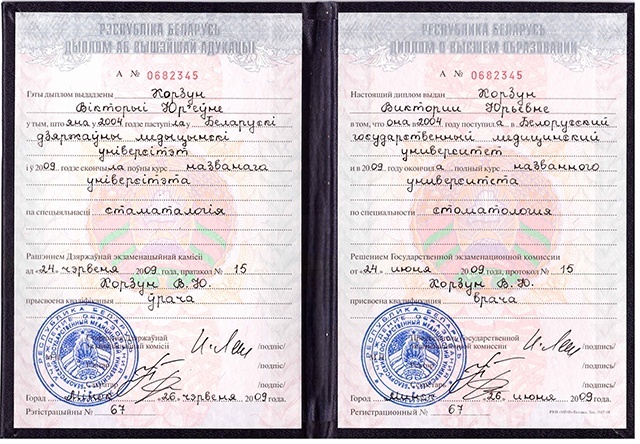 РЭСПУБЛІКА БЕЛАРУСЬ
ДЫПЛОМ АБ ВЫШЭЙШАЙ АДУКАЦЫІ
А № 0682345
Гэты дыплом выдадзены Корзун
Вікторыі Юр'еўне
у тым, што яна у 2004 годзе паступіла у Беларускі
дзяржаўны медыцынскі
універсітэт
і ў 2009 годзе скончыла поўны курс названага
універсітэта
па спецыяльнасці стаматалогія
Рашэннем Дзяржаўнай экзаменацыйнай камісіі
ад «24» чэрвеня 2009 года, пратакол № 15
Корзун В. Ю.
прысвоена кваліфікацыя
ўрача
Дзяржаўнай
камісіі /подпіс/
/подпіс/
/подпіс/
Горад Мінск «26» чэрвеня 2009 г.
Рэгістрацыйны № 67
РЕСПУБЛИКА БЕЛАРУСЬ
ДИПЛОМ О ВЫСШЕМ ОБРАЗОВАНИИ
А № 0682345
Настоящий диплом выдан Корзун
Виктории Юрьевне
в том, что она в 2004 году поступила в Белорусский
государственный медицинский
университет
и в 2009 году окончила полный курс названного
университета
по специальности стоматология
Решением Государственной экзаменационной комиссии
от «24» июня 2009 года, протокол № 15
Корзун В. Ю.
присвоена квалификация
врача
Государственной
комиссии /подпись/
/подпись/
/подпись/
Город Минск «26» июня 2009 г.
Регистрационный № 67